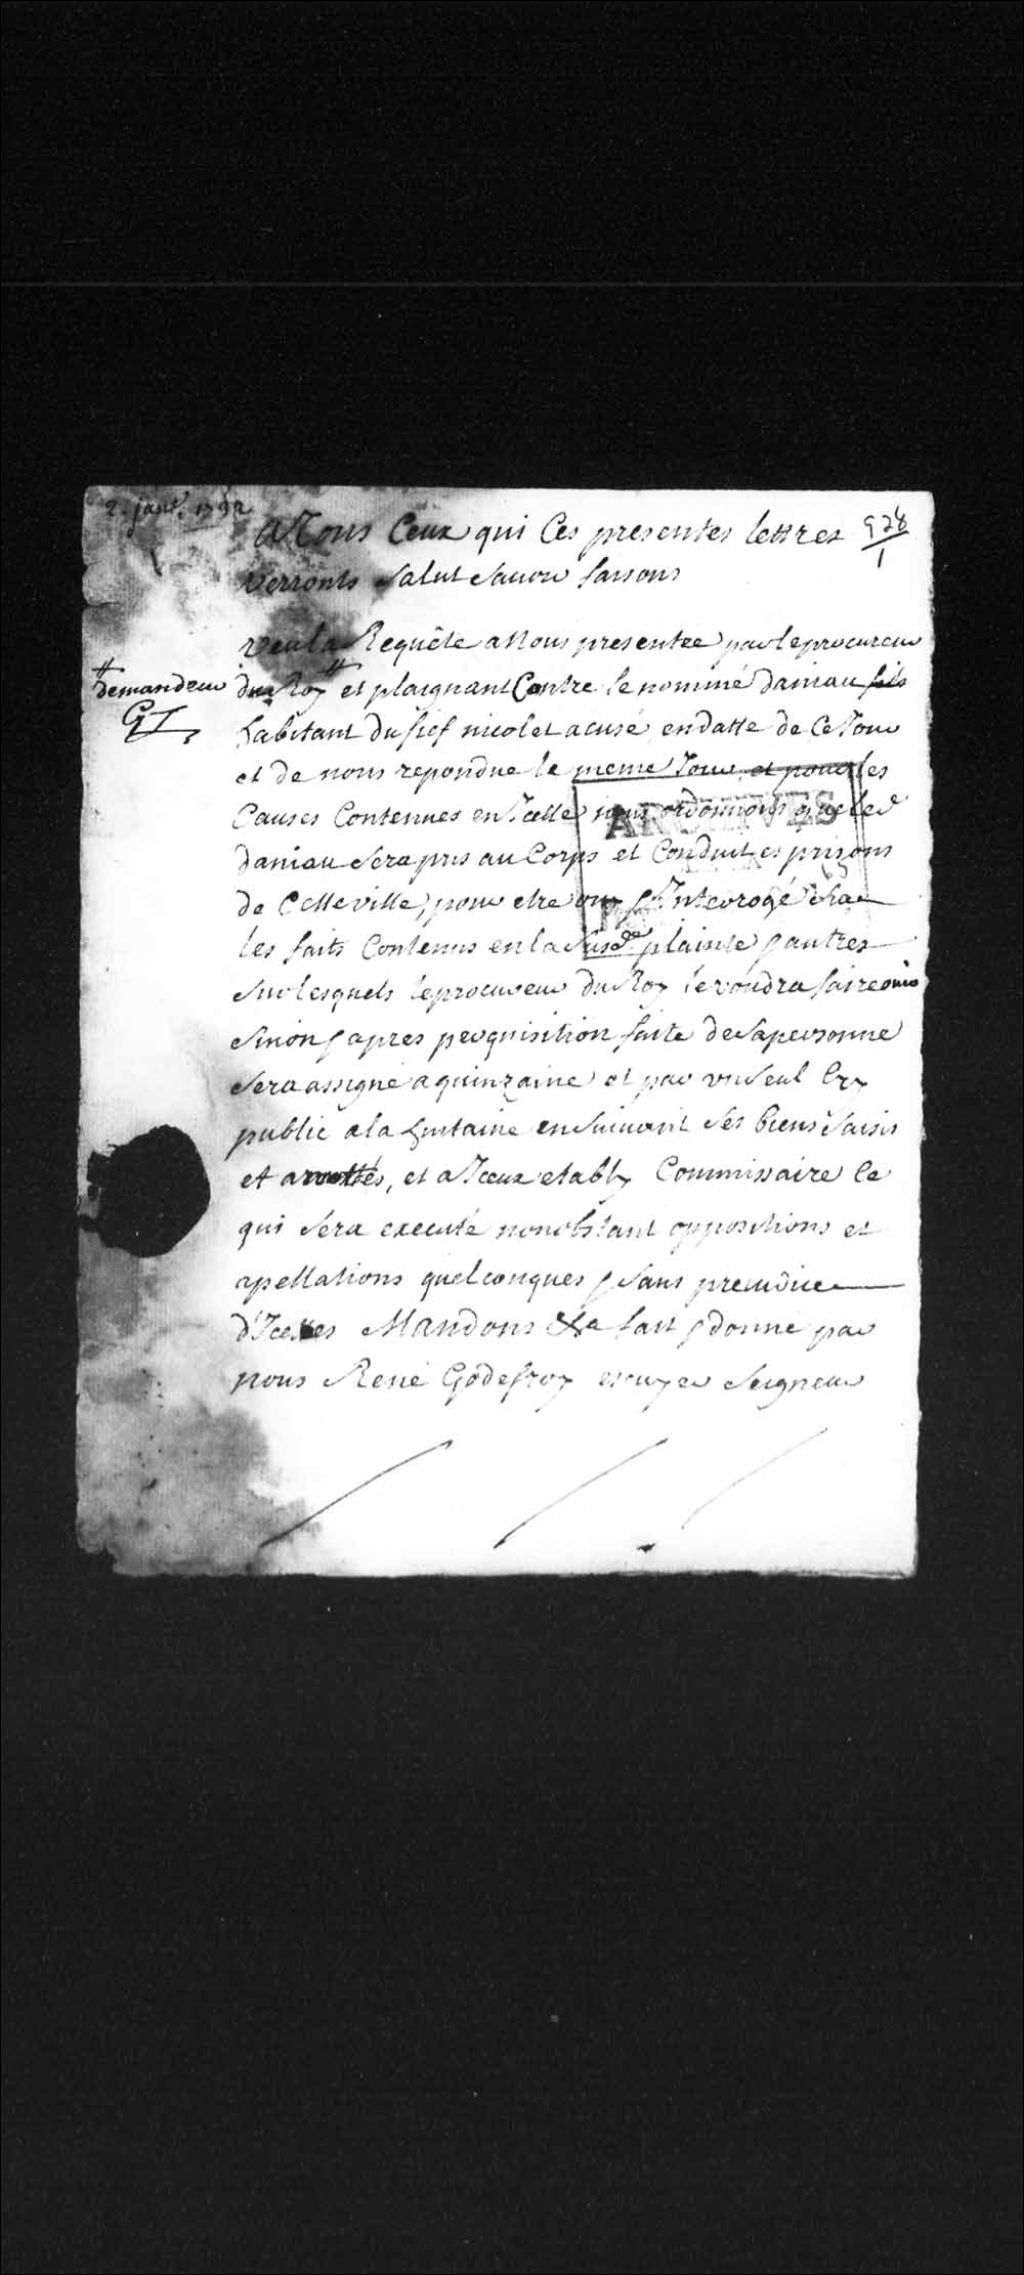 2. janv. 1732
A Tous Ceux qui Ces presentes lettres
verronts salut savoir faisons
veu la Requête a Nous presentée par le procureur
# demandeur
GT
du Roy # et plaignant Contre le nommé daniau fils
habitant du fief nicolet acusé en datte de Ce Jour
et de nous repondue le meme Jour et pour les
Causes Contenues en Icelle nous ordonnons que led
daniau sera pris au Corps et Conduit es prisons
de Cette ville, pour etre ouy & Interogé sur
les faits Contenus en la susde plainte & autres
sur lesquels le procureur du Roy le voudra faire ouir
sinon & apres perquisition faite de sa personne
sera assigné a quinzaine et par un seul Cry
public a la huitaine ensuivant ses biens saisis
et arrestés, et a Iceux estably Commissaire Ce
qui sera executé nonobstant oppositions et
apellations quelconques & sans prejudice
d'Icelles Mandons &a fait & donné par
nous René Godefroy escuyer seigneur
ARCHIVES